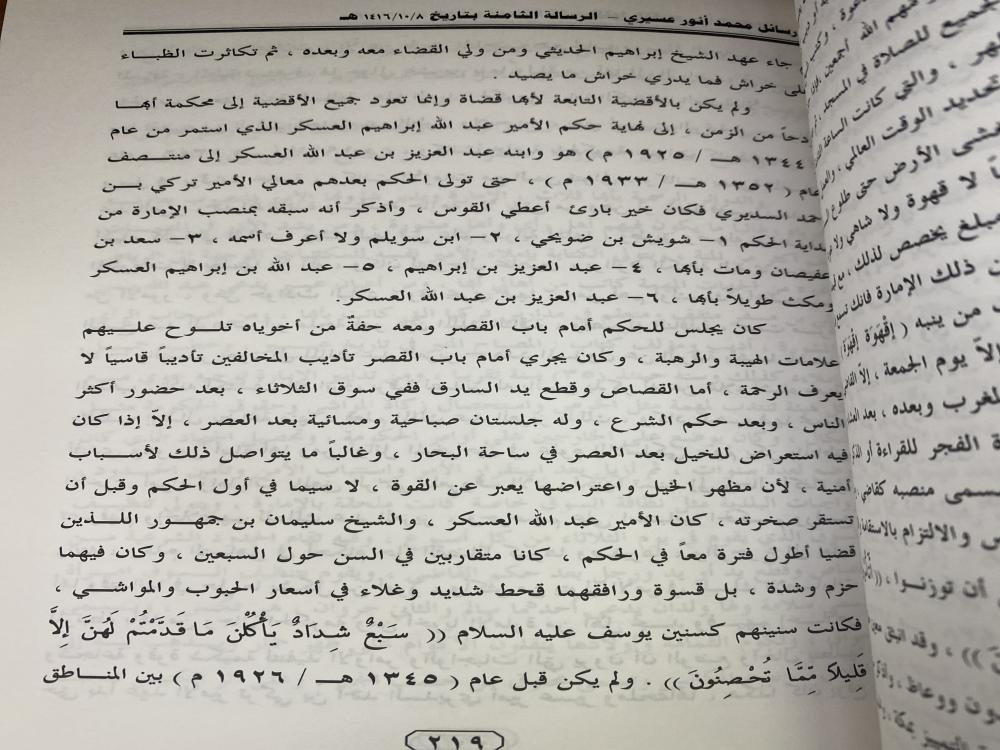 رسائل محمد أنور عسيري – الرسالة الثامنة بتاريخ ١٤١٦/١٠/٨ هـ
جاء عهد الشيخ إبراهيم الحديثي ومن ولي القضاء معه وبعده ، ثم تكاثرت الظباء
على خراش فما يدري خراش ما يصيد .
ولم يكن بالأقضية التابعة لأبها قضاة وإنما تعود جميع الأقضية إلى محكمة أبها
ردحاً من الزمن ، إلى نهاية حكم الأمير عبد الله إبراهيم العسكر الذي استمر من عام
١٣٤٤ هـ / ١٩٢٥ م ) هو وابنه عبد العزيز بن عبد الله العسكر إلى منتصف
عام ( ١٣٥٢ هـ / ١٩٣٣ م ) ، حتى تولى الحكم بعدهم معالي الأمير تركي بن
أحمد السديري فكان خير بارئ أعطي القوس ، وأذكر أنه سبقه بمنصب الإمارة من
بداية الحكم ١- شويش بن ضويحي ، ٢- ابن سويلم ولا أعرف أسمه ، ٣- سعد بن
عفيصان ومات بأبها ، ٤- عبد العزيز بن إبراهيم ، ٥- عبد الله بن إبراهيم العسكر
ومكث طويلاً بأبها ، ٦- عبد العزيز بن عبد الله العسكر.
كان يجلس للحكم أمام باب القصر ومعه حفةٌ من أخوياه تلوح عليهم
علامات الهيبة والرهبة ، وكان يجري أمام باب القصر تأديب المخالفين تأديباً قاسياً لا
يعرف الرحمة ، أما القصاص وقطع يد السارق ففي سوق الثلاثاء ، بعد حضور أكثر
الناس ، وبعد حكم الشرع ، وله جلستان صباحية ومسائية بعد العصر ، إلاّ إذا كان
فيه استعراض للخيل بعد العصر في ساحة البحار ، وغالباً ما يتواصل ذلك لأسباب
أمنية ، لأن مظهر الخيل واعتراضها يعبر عن القوة ، لا سيما في أول الحكم وقبل أن
تستقر صخرته ، كان الأمير عبد الله العسكر ، والشيخ سليمان بن جمهور اللذين
قضيا أطول فترة معاً في الحكم ، كانا متقاربين في السن حول السبعين ، وكان فيهما
حزم وشدة ، بل قسوة ورافقهما قحط شديد وغلاء في أسعار الحبوب والمواشي ،
فكانت سنينهم كسنين يوسف عليه السلام (( سَبْعٌ شِدَادٌ يَأْكُلْنَ مَا قَدَّمْتُمْ لَهُنَّ إِلَّا
قَلِيلًا مِّمَّا تُحْصِنُونَ )) . ولم يكن قبل عام ( ١٣٤٥ هـ / ١٩٢٦ م ) بين المناطق
٢١٩
الجميع للصلاة في المسجد
، والتي كانت الساعة
تحديد الوقت العالمي ،
الأرض حتى طلوع
لا قهوة ولا شاهي ولا
يخصص لذلك ،
ذلك الإمارة فانك
من ينبه ( إِقْهَوَة
إلاّ يوم الجمعة ، إلاّ
لمغرب وبعده ، بعد
الفجر للقراءة أو
منصبه كقاضي
والالتزام
أن توزنوا ، ((
)) ، وقد
ووعاظ ،
بمكة ،